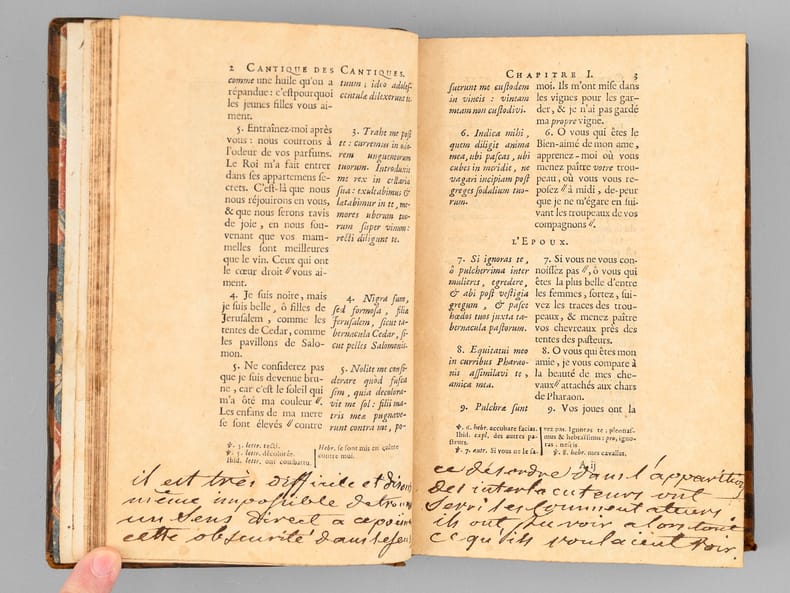 2 CANTIQUE DES CANTIQUES.
comme une huile qu'on a
répandue : c'est pourquoi
les jeunes filles vous ai-
ment.
5. Entraînez-moi après
vous : nous courrons à
l'odeur de vos parfums.
Le Roi m'a fait entrer
dans ses appartemens se-
crets. C'est-là que nous
nous réjouirons en vous,
& que nous serons ravis
de joie, en nous sou-
venant que vos mam-
melles sont meilleures
que le vin. Ceux qui ont
le cœur droit // vous ai-
ment.
4. Je suis noire, mais
je suis belle, ô filles de
Jerusalem, comme les
tentes de Cedar, comme
les pavillons de Salo-
mon.
5. Ne considerez pas
que je suis devenue bru-
ne, car c'est le soleil qui
m'a ôté ma couleur //.
Les enfans de ma mere
se sont élevés // contre
tuum ; ideo adolef-
centulæ dilexerunt te.
3. Trahe me post
te : curremus in odo-
rem unguentorum
tuorum. Introduxit
me rex in cellaria
sua : exultabimus &
lætabimur in te, me-
mores uberum tuo-
rum super vinum :
recti diligunt te.
4. Nigra sum,
sed formosa, filiæ
Jerusalem, sicut ta-
bernacula Cedar, si-
cut pelles Salomonis.
5. Nolite me consi-
derare quòd fusca
sim, quia decolora-
vit me sol : filii ma-
tris meæ pugnave-
runt contra me, po-
℣. 3. lettr. recti.
℣. 4. lettr. décolorée.
Ibid. lettr. ont combattu.
Hebr. se sont mis en colere
contre moi.
il est très difficile et disons
même impossible de trouver
un sens direct a ce point
cette obscurité dans le sens
CHAPITRE I. 3
suerunt me custodem
in vineis : vineam
meam non custodivi.
6. Indica mihi,
quem diligit anima
mea, ubi pascas, ubi
cubes in meridie, ne
vagari incipiam post
greges sodalium tuo-
rum.
moi. Ils m'ont mise dans
les vignes pour les gar-
der, & je n'ai pas gardé
ma propre vigne.
6. O vous qui êtes le
Bien-aimé de mon ame,
apprenez-moi où vous
menez paître votre trou-
peau, où vous vous re-
posez // à midi, de-peur
que je ne m'égare en sui-
vant les troupeaux de vos
compagnons //.
L'EPOUX.
7. Si ignoras te,
ô pulcherrima inter
mulieres, egredere,
& abi post vestigia
gregum, & pasce
hœdos tuos juxta ta-
bernacula pastorum.
8. Equitatui meo
in curribus Pharao-
nis assimilavi te,
amica mea.
9. Pulchræ sunt
7. Si vous ne vous con-
noissez pas //, ô vous qui
êtes la plus belle d'entre
les femmes, sortez, sui-
vez les traces des trou-
peaux, & menez paître
vos chevreaux près des
tentes des pasteurs.
8. O vous qui êtes mon
amie, je vous compare à
la beauté de mes che-
vaux // attachés aux chars
de Pharaon.
9. Vos joues ont la
℣. 6. hebr. accubare facias.
Ibid. expl. des autres pa-
steurs.
℣. 7. autr. Si vous ne le sa-
vez pas. Ignoras te : pleonas-
mus & hebraïsmus : pro, igno-
ras, nescis.
℣. 8. hebr. mes cavalles.
A ij
ce désordre dans l'apparition
des interlocuteurs ont
servi les commentateurs.
ils ont pu voir alors tout
ce qu'ils voulaient voir.